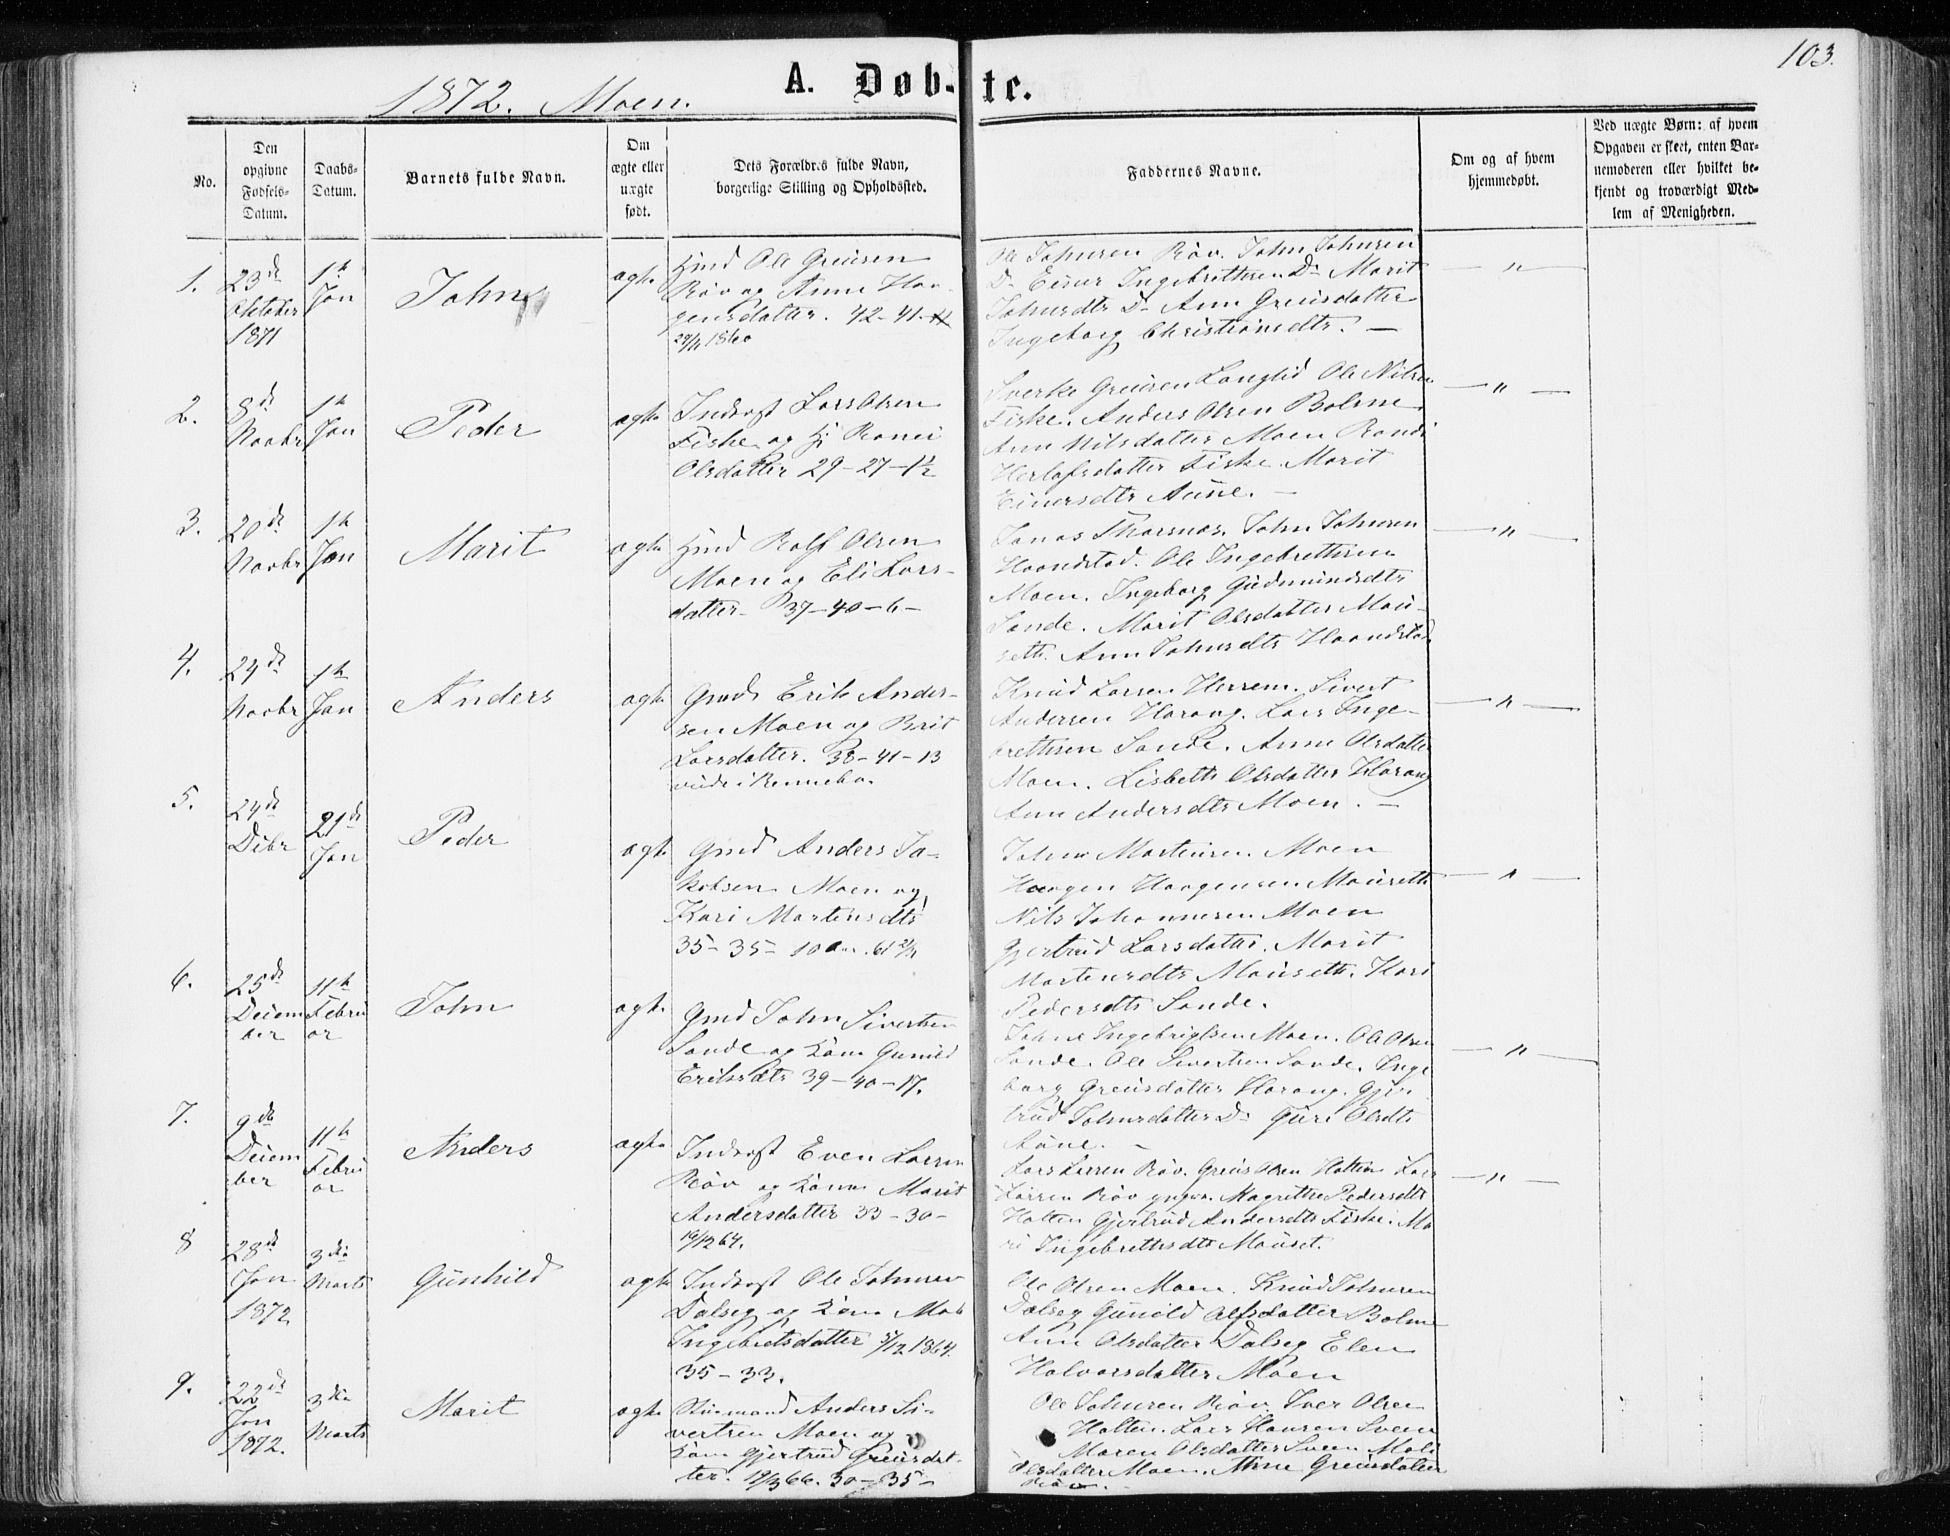 103.
1872. Moen.
A. Døb-te.
No.
Den opgivne Fødsels-Datum.
Daabs-Datum.
Barnets fulde Navn.
Om ægte eller uægte født.
Dets Forældres fulde Navn, borgerlige Stilling og Opholdssted.
Faddernes Navne.
Om og af hvem hjemmedøbt.
Ved uægte Børn: af hvem
Opgaven er skeet, enten Bar-
nemoderen eller hvilket be-
kjendt og troværdigt Med-
lem af Menigheden.
1.
23de
Oktober
1871
1te
Jan
John
ægte
Hmd Ole Greisen
Røv og Anne Haa-
gensdatter. 42-41-
29/11 1860
Ole Johnsen Røv. John Johnsen
Do Einar Ingebrethsen Do Marit
Johnsdtr Do Ann Greisdatter
Ingeborg Christiansdtr. —
— " —
2.
8de
Novbr
1te
Jan
Peder
ægte
Inderst Lars Olsen
Fiske og H. Ronei
Olsdatter 29-27-1½
Sverke Greisen Langlid Ole Nilsen
Fiske. Anders Olsen Bolme
Ann Nilsdatter Moen Randi
Herlofsdatter Fiske. Marit
Einersdtr Aune. —
— " —
3.
20de
Novbr
1te
Jan
Marit
ægte
Hmd Rolf Olsen
Moen og Eli Lars-
datter- 37-40-6-
Jonas Thorsnæs. John Johnsen
Haandstad. Ole Ingebrethsen
Moen. Ingeborg Gudmundsdtr
Sande. Marit Olsdatter Mou-
seth. Ann Johnsdtr Haandstad
— " —
4.
24de
Novbr
1te
Jan
Anders
ægte
Gmd Erik Ander-
sen Moen og Brit
Larsdatter. 38-41-13
viede i Rennebo.
Knud Larsen Herrem. Sivert
Andersen Harang. Lars Inge-
brethsen Sande. Anne Olsdatter
Moen. Lisbeth Olsdatter Harang
Ann Andersdtr Moen. —
— " —
5.
24de
Debr
21de
Jan
Peder
ægte
Gmd Anders Ja-
kobsen Moen og
Kari Martensdtr
35-35-10
John Martensen Moen
Haagen Haagensen Mouseth
Nils Johannesen Moen
Gjertrud Larsdatter. Marit
Martensdtr Mouseth. Kari
Pedersdtr Sande.
— " —
6.
25de
Decem
ber
11te
Febru
ar
John
ægte
Gmd John Sivertsen
Sande og Kone Gunild
Eriksdtr 39-40-17.
Johne Ingebrigtsen Moen. Ole Olsen
Sande. Ole Sivertsen Sande. Inge
borg Greisdatter Harang. Gjer-
trud Johnsdatter Do Guri Olsdtr
Aune. —
— " —
7.
9de
Decem
ber
11te
Febru
ar
Anders
ægte
Inderst Even Larsen
Røv og Kone Marit
Andersdatter 33-30-
19/12 64.
Lars Larsen Røv. Greis Olsen Holten Lars
Larsen Røv yngre. Magrethe Pedersdtr
Holten Gjertrud Andersdtr Fiske. Ma
ri Ingebrethsdtr Mouset.
— " —
8
28de
Jan
1872
3die
Marts
Gunhild
ægte
Inderst Ole Johnsen
Dalseg og Kone Mali
Ingebretsdatter 5/12 1864.
35-33.
Ole Olsen Moen. Knud Johnsen
Dalseg Gunild Olsdatter Bolme
Ann Olsdatter Dalseg Elen
Halvorsdatter Moen
9.
22de
Jan
1872.
3die
Marts
Marit
ægte
Anders Si-
vertsen Moen og
Kone Gjertrud Greisdat-
ter. 19/3 66. 30-35-
Ole Johnsen Røv. Iver Olsen
Holten. Lars Hansen Sveen
Maren Olsdatter Sveen Mali
Olsdatter Moen. Anne Greisdatter
Røv. -